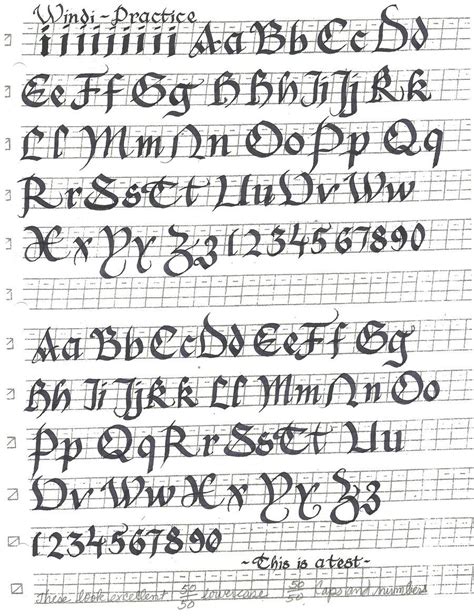 Windi-Practice
iiiiiiiii Aa Bb Cc Dd
Ee Ff Gg Hh Ii Jj Kk
Ll Mm Nn Oo Pp Qq
Rr Ss Tt Uu Vv Ww
Xx Yy Zz 1234567890
Aa Bb Cc Dd Ee Ff Gg
Hh Ii Jj Kk Ll Mm Nn Oo
Pp Qq Rr Ss Tt Uu
Vv Ww Xx Yy Zz
1234567890
~This is a test~
These look excellent 50/50 lowercase 50/50 Caps and numbers